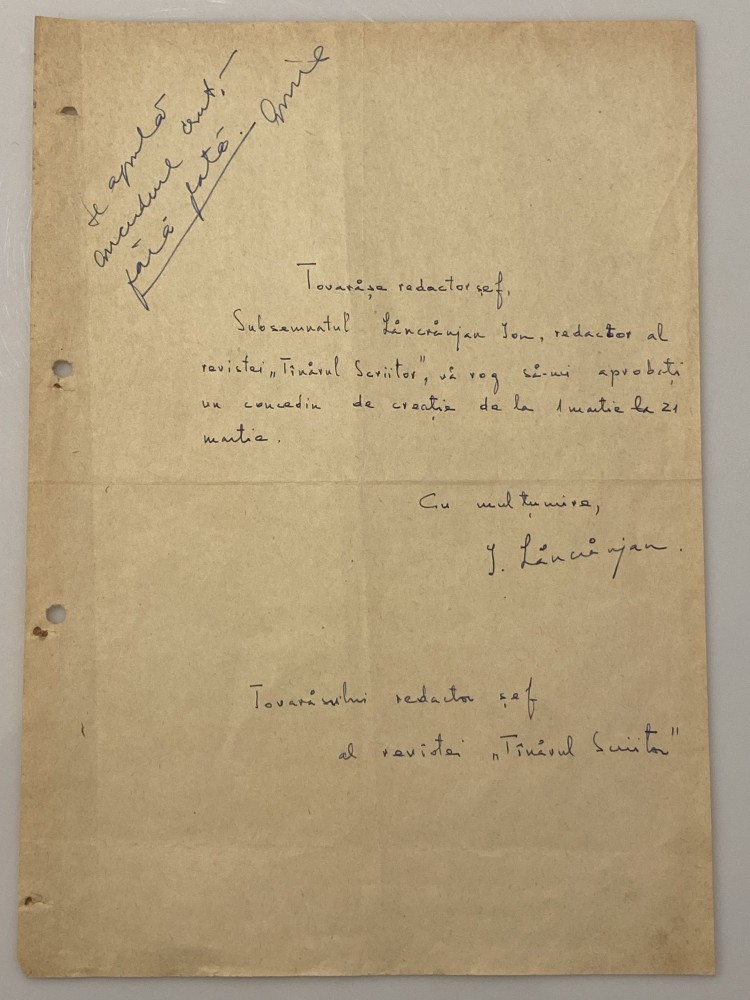 se aprobă
concediul cerut,
fără plată.
Tovarășe redactor șef,
Subsemnatul Lăncrănjan Ion, redactor al
revistei „Tînărul Scriitor", vă rog să-mi aprobați
un concediu de creație de la 1 martie la 21
martie.
Cu mulțumire,
I. Lăncrănjan.
Tovarășului redactor șef
al revistei „Tînărul Scriitor"